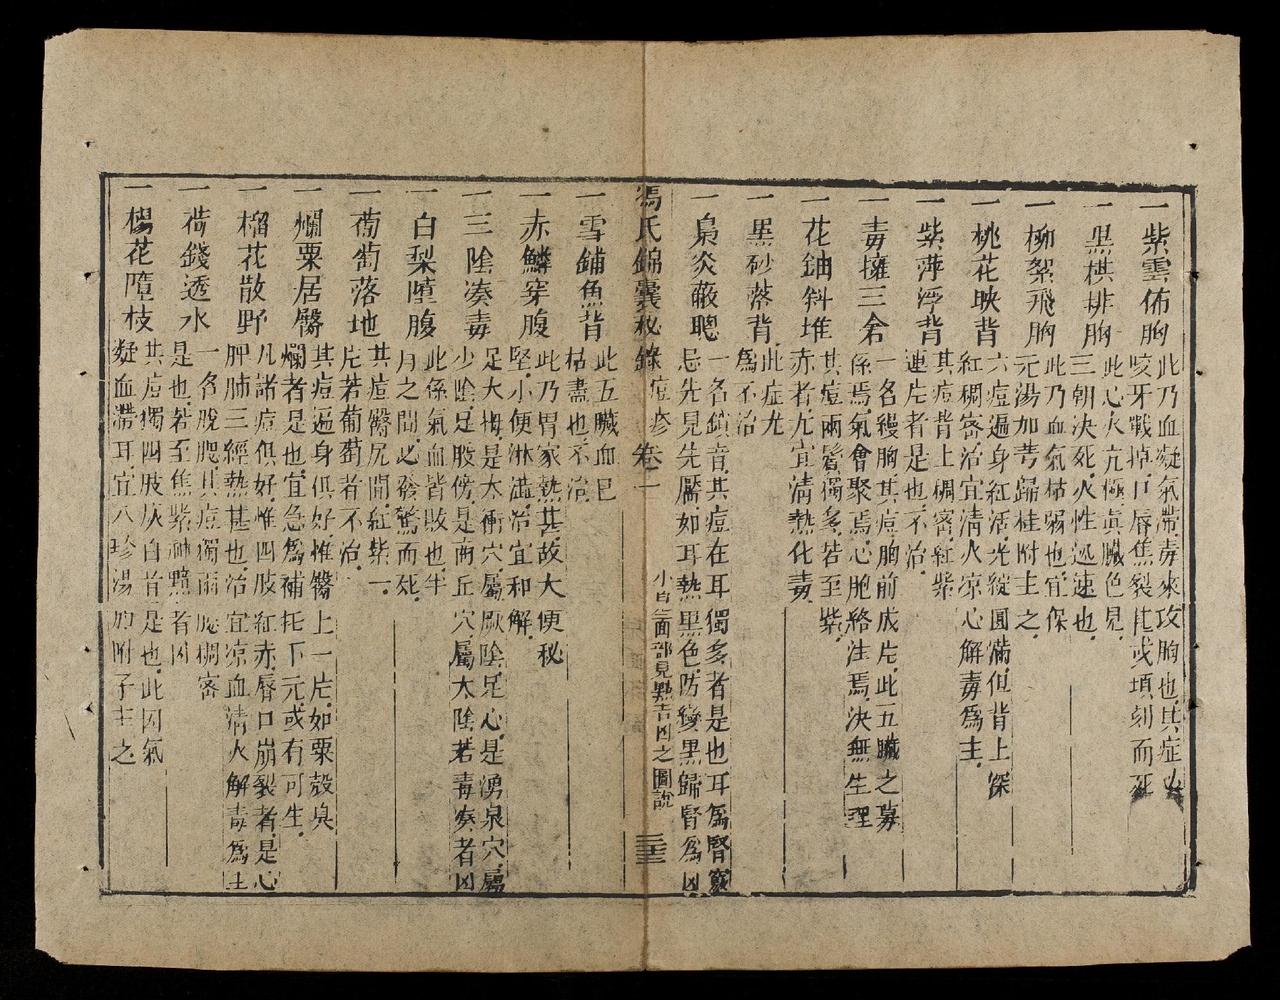 一紫雲佈胸
此乃血凝氣滯毒來攻胸也其症必
咬牙戰掉口唇焦裂或頃刻而死
一黑棋排胸
此心火亢極眞臟色見
三朝決死火性迅速也
一柳絮飛胸
此乃血氣枯弱也宜保
元湯加芎歸桂附主之
一桃花映背
六痘遍身紅活光綻圓滿但背上深
紅稠密治宜清火凉心解毒爲主
一紫萍浮背
其痘背上稠密紅紫
連片者是也不治
一毒擁三倉
一名纓胸其痘胸前成片此五臟之募
係焉氣會聚焉心胞絡注焉決無生理
一花鈿斜堆
其痘兩鬢獨多若至紫
赤者尤宜清熱化毒
一黑砂落背
此症尤
爲不治
一梟炎蔽聰
一名鎖音其痘在耳獨多者是也耳爲腎竅
忌先見先靨如耳熱黑色防變黑歸腎爲凶
馮氏錦囊秘錄
痘疹 卷二
面部見點吉凶之圖說
三十三
一雪鋪魚背
此五臟血已
枯盡也不治
一赤鱗穿腹
此乃胃家熱甚故大便秘
堅小便淋澁治宜和解
一三陰凑毒
足大拇是太衝穴屬厥陰足心是湧泉穴屬
少陰足股傍是商丘穴屬太陰若毒凑者凶
一白梨墮腹
此係氣血皆敗也半
月之間必發驚而死
一葡萄落地
其痘臀尻間紅紫一
片若葡萄者不治
一爛粟居臀
其痘遍身俱好惟臀上一片如粟殼臭
爛者是也宜急爲補托下元或有可生
一榴花散野
凡諸痘俱好惟四肢紅赤唇口崩裂者是心
脾肺三經熱甚也治宜凉血清火解毒爲主
一荷錢透水
一名脫爬其痘獨兩腿稠密
是也若至焦紫神黯者凶
一楊花墮枝
其痘獨四肢灰白者是也此因氣
凝血滯耳宜八珍湯加附子主之